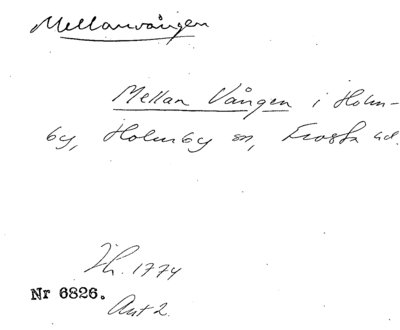 Mellanvången
Mellan Vången i Holm-
by, Holmby sn, Frosta hd.
Jh. 1774
Nr 6826.
Akt 2.